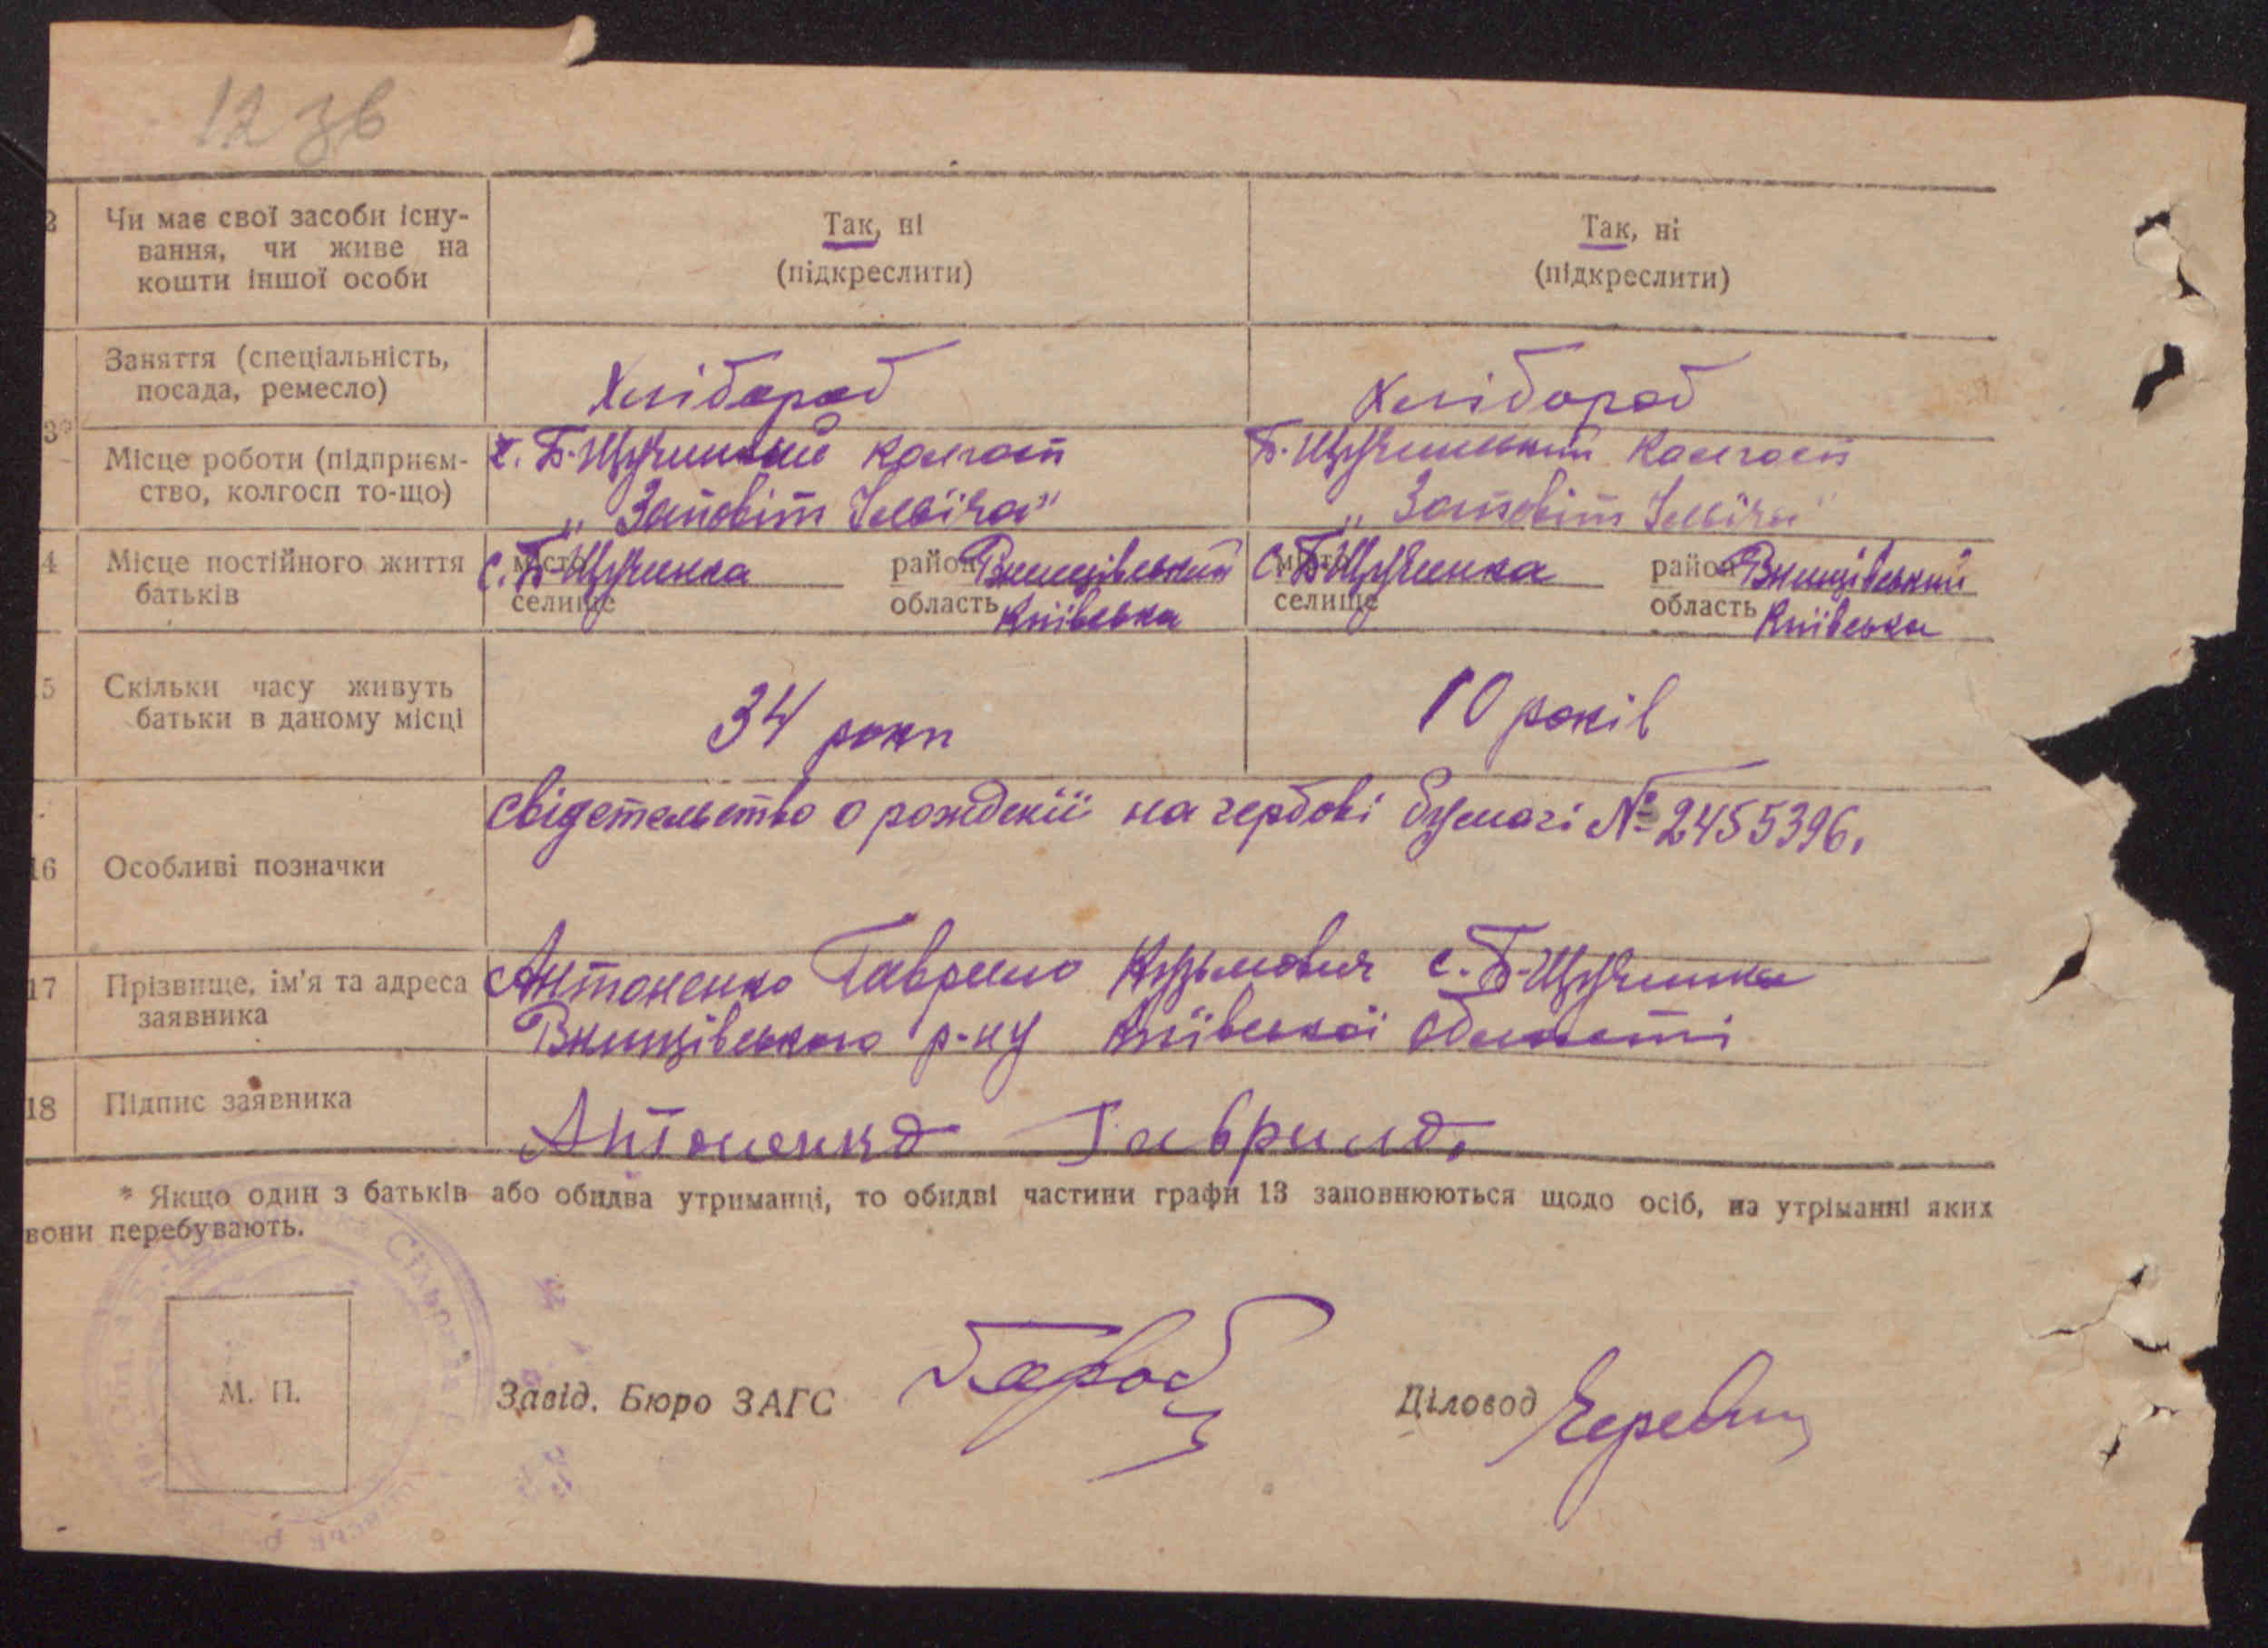 12 зв
2 Чи має свої засоби існу-
вання, чи живе на
кошти іншої особи
Так, ні
(підкреслити)
Так, ні
(підкреслити)
Заняття (спеціальність,
посада, ремесло)
Хлібороб
Хлібороб
3*
Місце роботи (підприєм-
ство, колгосп то-що)
с. Б-Щучинський колгосп
„Заповіт Ілліча"
Б-Щучинський колгосп
„Заповіт Ілліча"
4 Місце постійного життя
батьків
місто
селище
с. Б-Щучинка
район Ржищівський
область Київська
місто
селище
с. Б-Щучинка
район Ржищівський
область Київська
5 Скільки часу живуть
батьки в даному місці
34 роки
10 років
16 Особливі позначки
свідетельство о рожденії на гербові бумагі № 2455396.
17 Прізвище, ім'я та адреса
заявника
Антоненко Гаврило Кузьмович с. Б-Щучинка
Ржищівського р-ну Київської області
18 Підпис заявника
Антоненко Гаврило.
* Якщо один з батьків або обидва утриманці, то обидві частини графи 13 заповнюються щодо осіб, на утріманні яких
вони перебувають.
М. П.
Завід. Бюро ЗАГС
Діловод